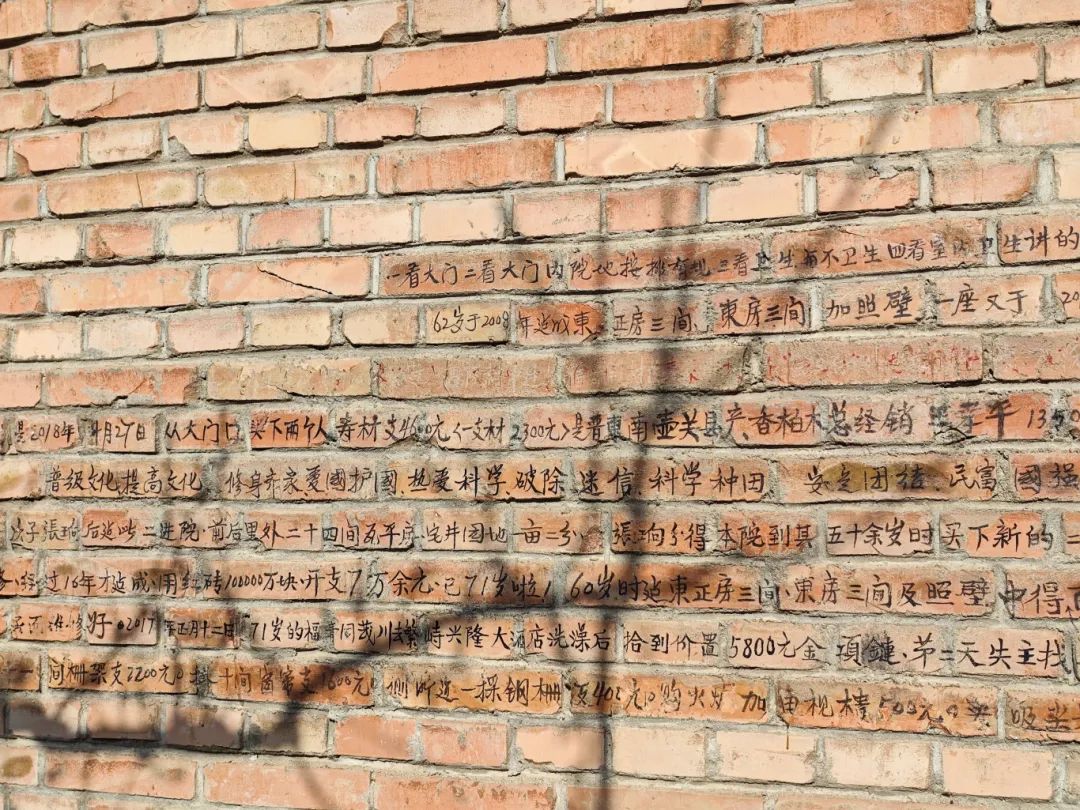 一看大门二看大门内院地按排有规三看卫生与不卫生四看室内卫生讲的
62岁于2008年造成東正房三间、東房三间加照壁一座又于20
是2018年4月27日从大门口买下两个人寿材支4600元〈一支材2300元〉是晋東南壶关县产香柏木总经销 平1350
普级文化提高文化修身齐家爱國护國、热爱科学、破除迷信、科学种田安定团结、民富國强
子張珦后造此二进院·前后里外二十四间瓦平房宅井园地一亩二分、張珦分得本院到其五十余岁时买下新的二
经过16年才造成·用红砖100000万块·开支7万余元·已71岁啦！60岁时造東正房三间、東房三间及照壁中得
好。2017年正月十二日71岁的福青同茂川去繁峙兴隆大酒店洗澡后拾到价置5800元金項鏈、苐二天失主找
一间栅架支2200元。 十间窗帘支1600元。侧所造一探钢栅支402元。购火炉加电视樻500元。 吸尘